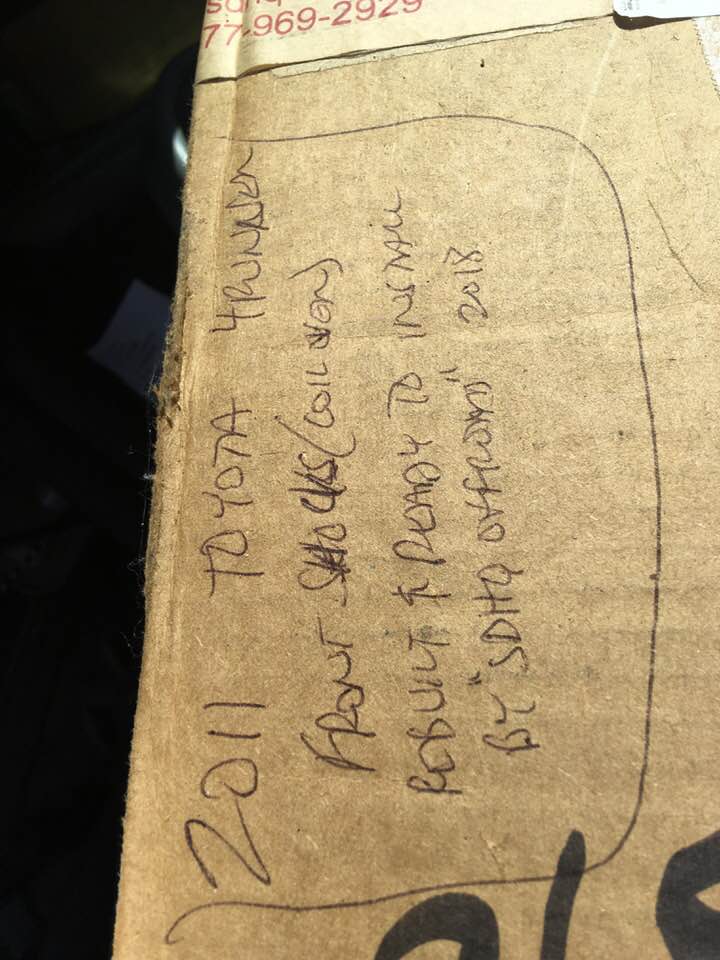 77-969-2929
2011 TOYOTA 4RUNNER
FRONT SHOCKS (COIL OVER)
REBUILT & READY TO INSTALL
BY "SDHQ OFFROAD" 2018